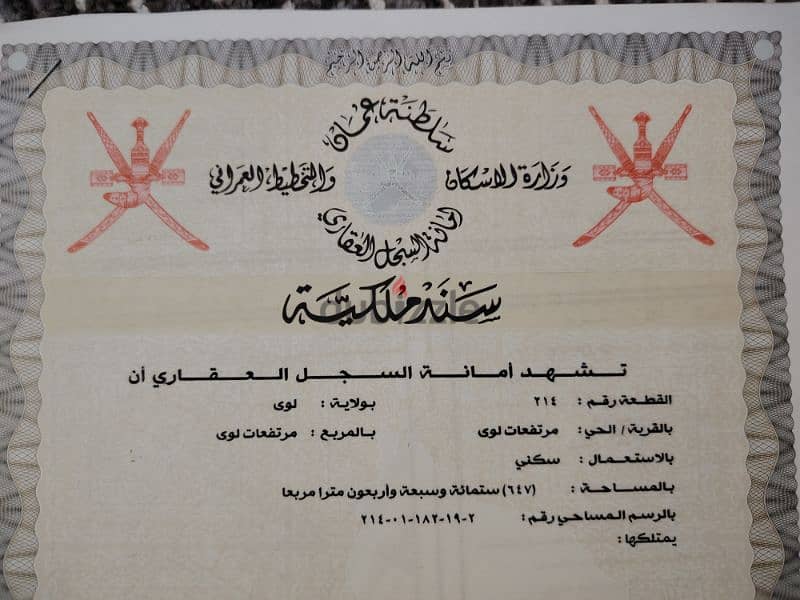 بسم الله الرحمن الرحيم
سلطنة عمان
وزارة الاسكان والتخطيط العمراني
امانة السجل العقاري
سند ملكية
dubizzle
تشهد أمانة السجل العقاري أن
القطعة رقم : ٢١٤ بولاية : لوى
بالقرية / الحي: مرتفعات لوى بالمربع : مرتفعات لوى
بالاستعمال : سكني
بالمساحة : (٦٤٧) ستمائة وسبعة وأربعون مترا مربعا
بالرسم المساحي رقم: ٢-١٩-١٨٢-٠١-٢١٤
يمتلكها: